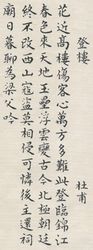 登樓 杜甫
花近高樓傷客心萬方多難此登臨錦江
春色來天地玉壘浮雲變古今北極朝廷
終不改西山寇盜莫相侵可憐後主還祠
廟日暮聊為梁父吟